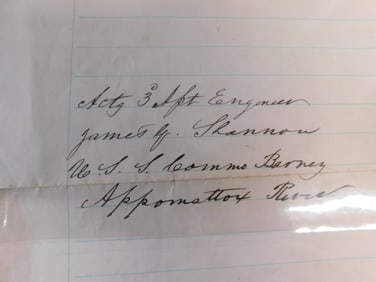 Actg 3d Asst Engineer
James G. Shannon
U. S. S. Commo Barney
Appomattox River